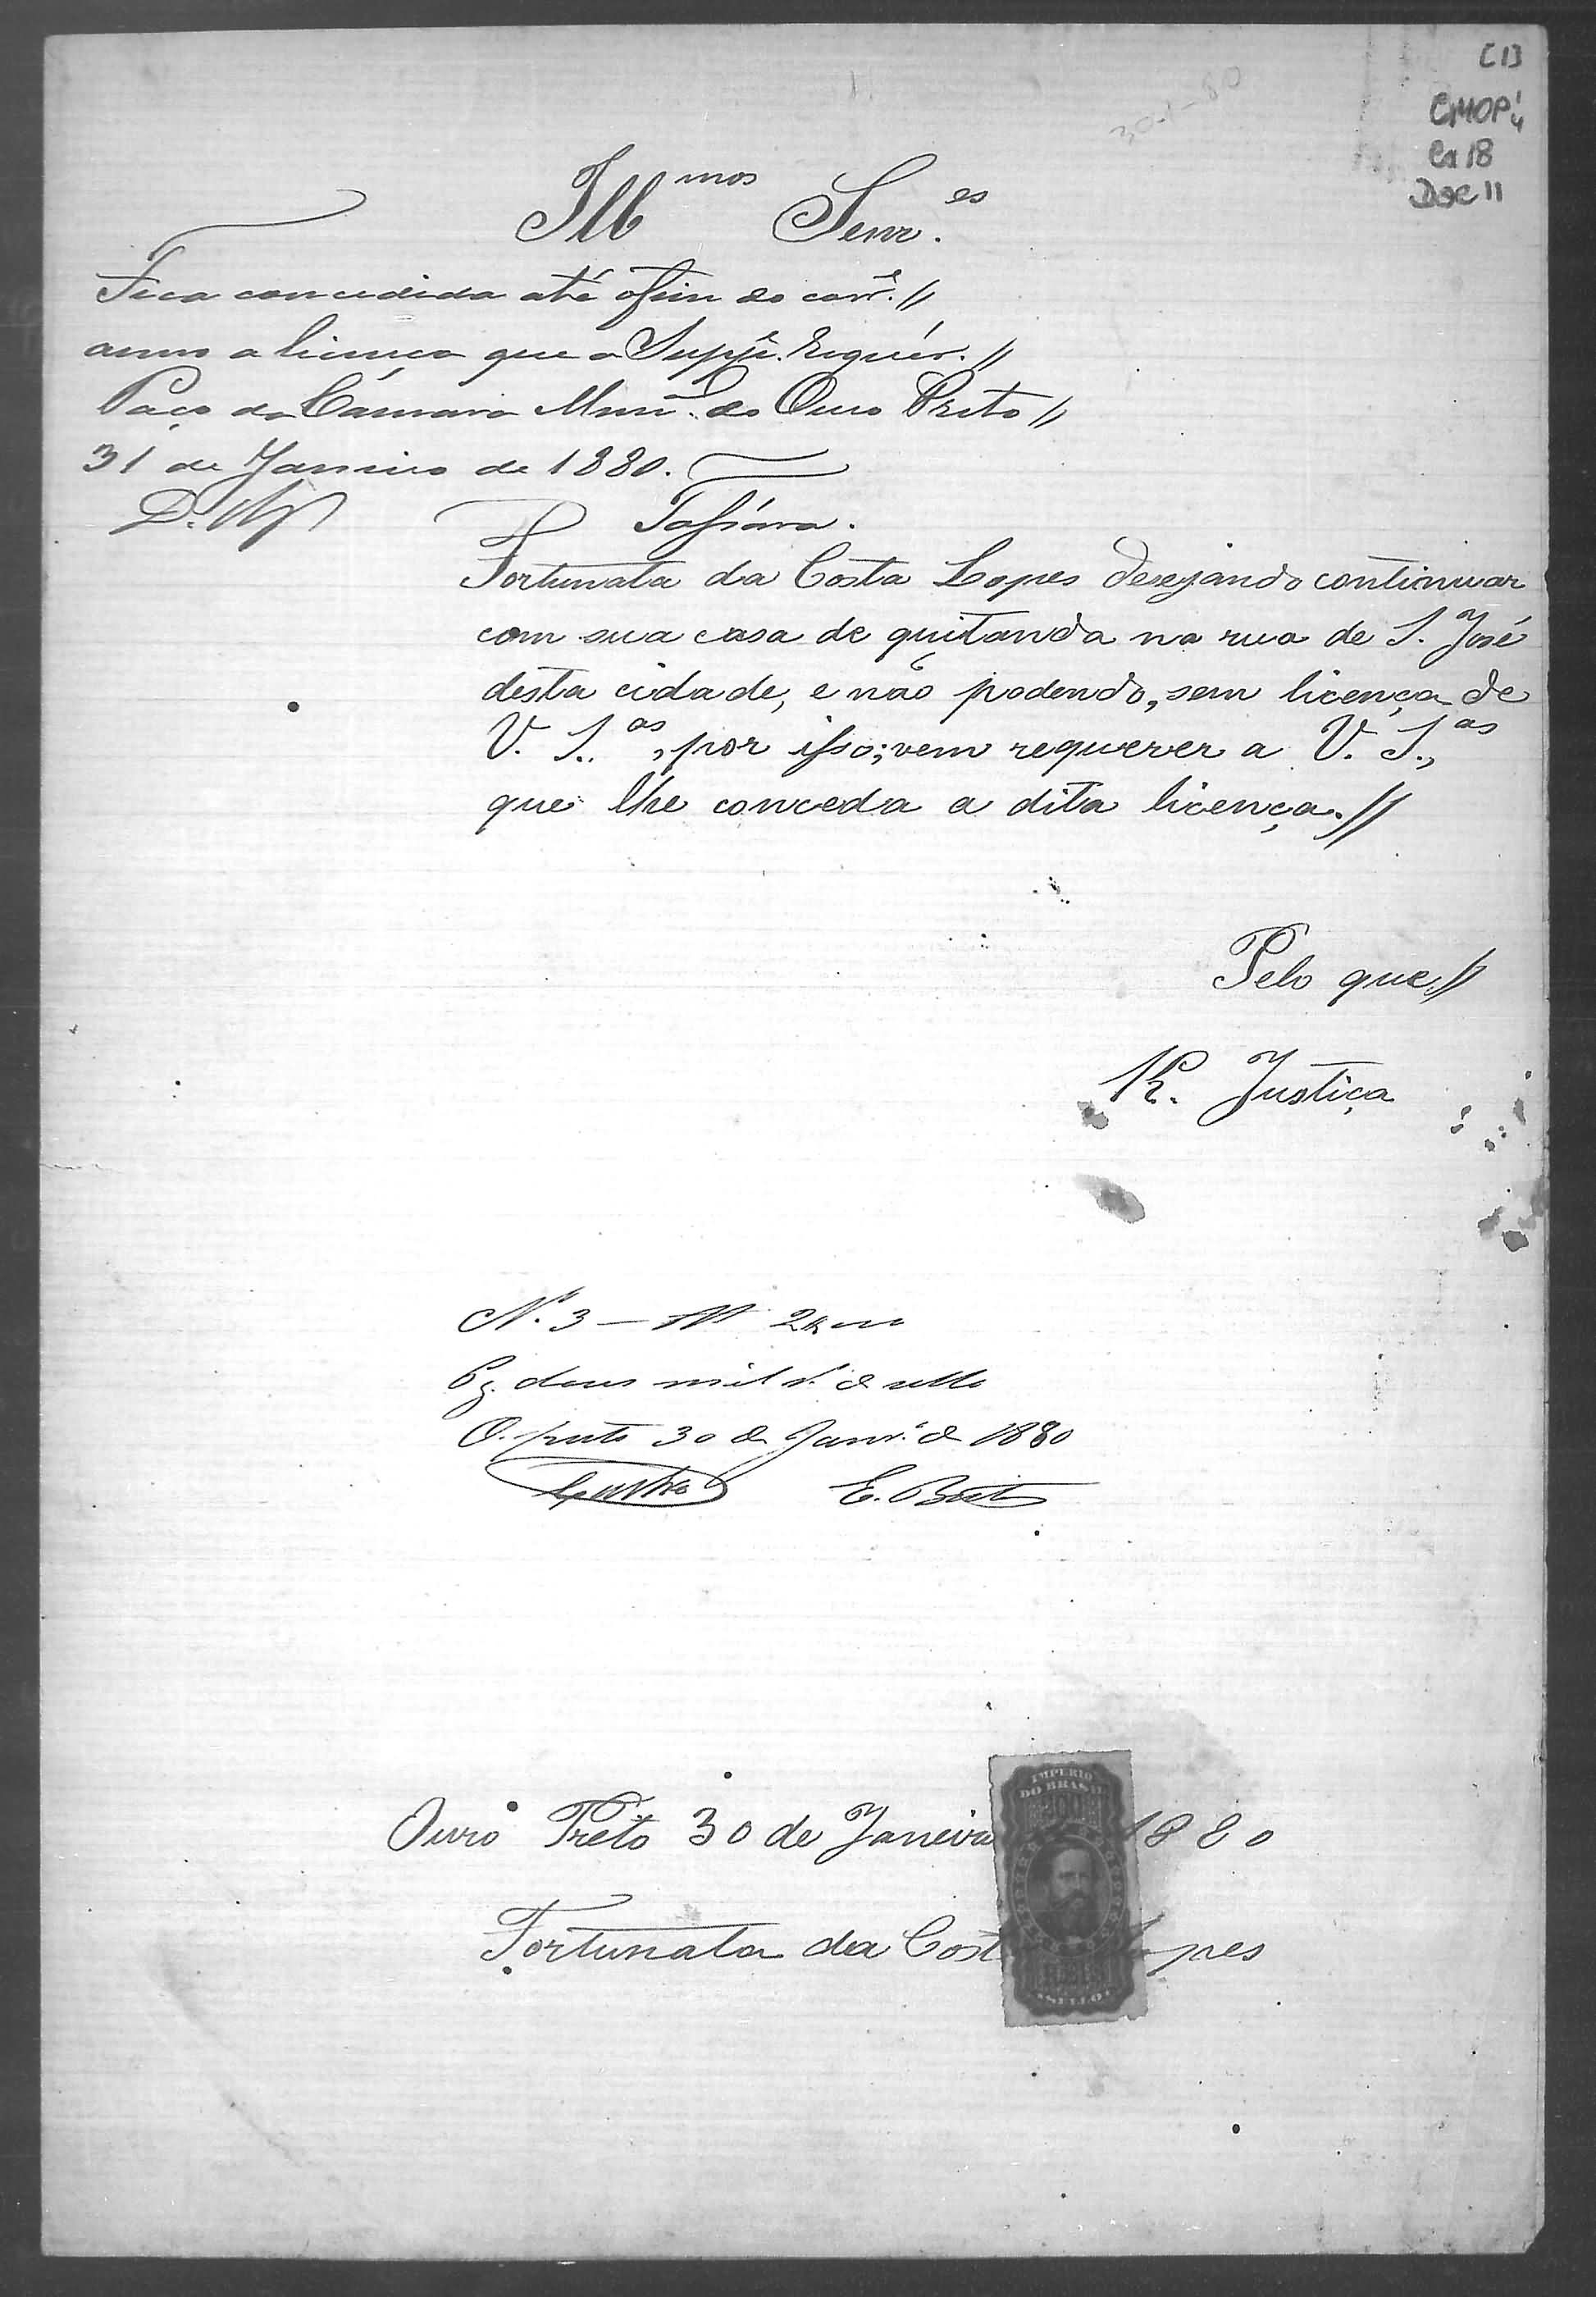 [1]
CMOP
Cx 18
Doc 11
30-1-80
Ill.mos Senr.es
Fica concedida até o fim do corr.e //
anno a licença que a Supp.e requér. //
Paço da Camara Mun.al do Ouro Preto //
31 de Janeiro de 1880.
Fortunata da Costa Lopes desejando continuar
com sua casa de quitanda na rua de S. José
desta cidade, e não podendo, sem licença de
V. S.as, por isso; vem requerer a V. S.as,
que lhe conceda a dita licença. //
Pelo que //
R. Justiça
N.º 3 —
Pg. dous mil r.s de sello
O. preto 30 de Janr.º de 1880
Ouro Preto 30 de Janeiro 1880
IMPERIO
DO BRASIL
SELLO
Fortunata da Cost pes